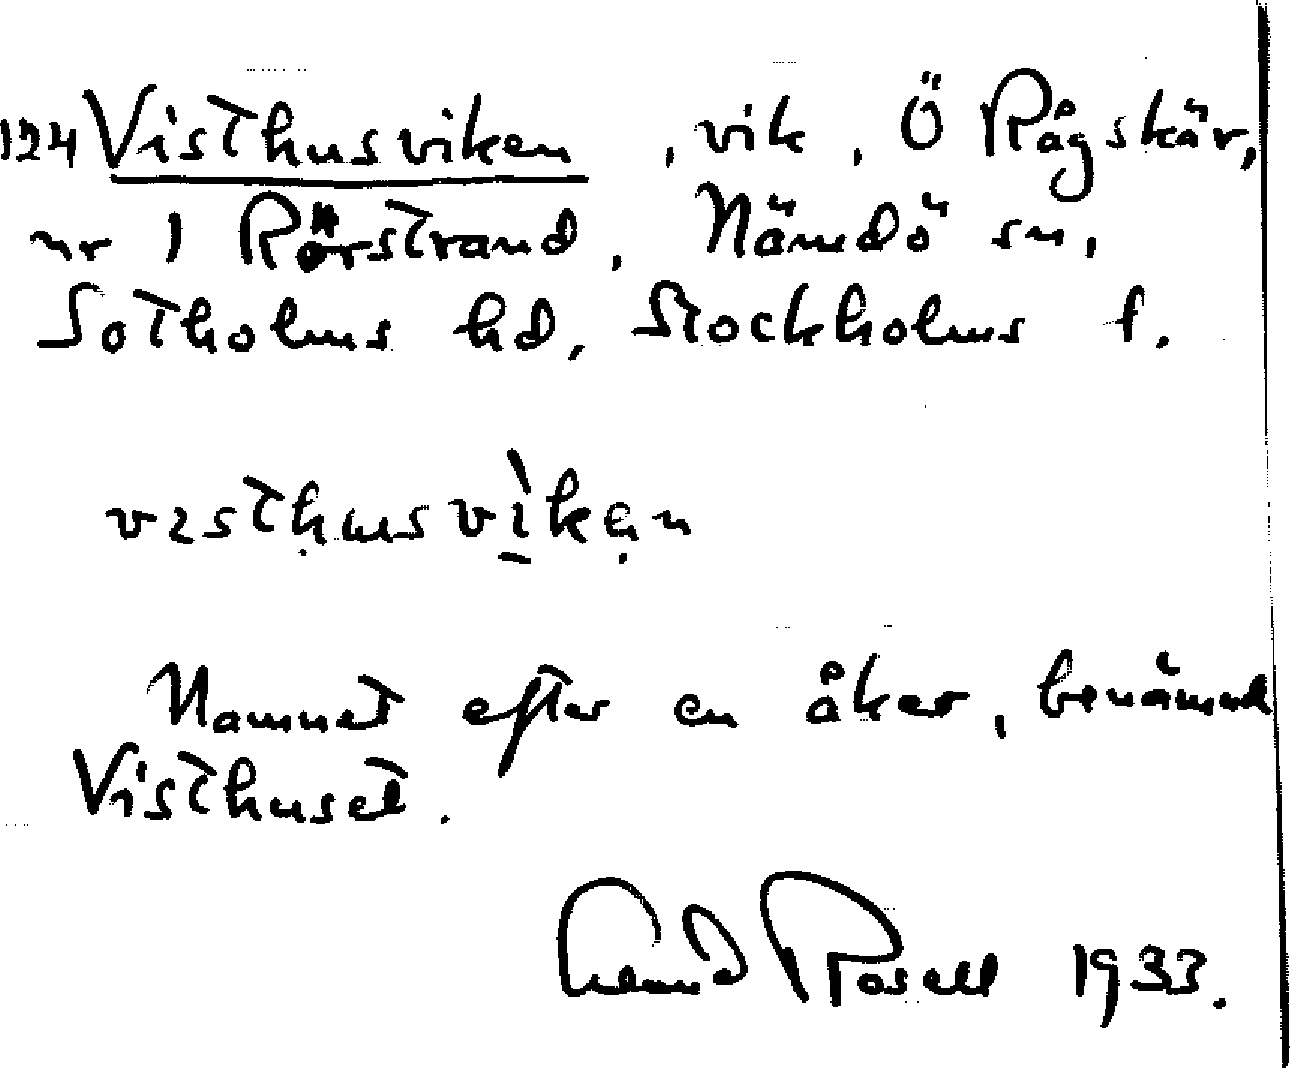 124 Visthusviken, vik, Ö Rågskär,
nr 1 Rörstrand, Nämdö sn,
Sotholms hd, Stockholms l.
Namnet efter en åker, benämnd
Visthuset.
Rosell 1933.